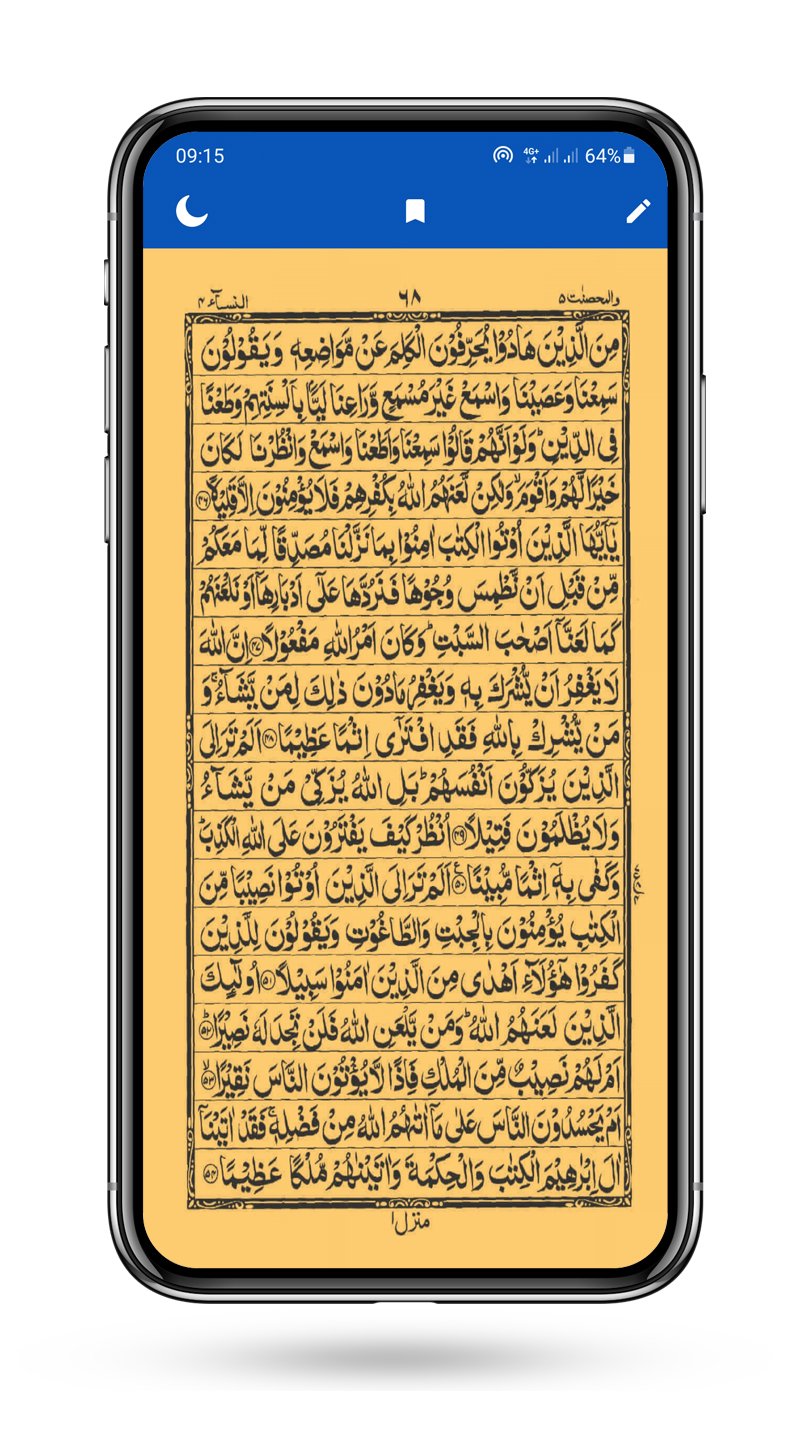 09:15 4G+ 64%
والمحصنٰت ۵ ۶۸ النسآء ۴
مِنَ الَّذِیْنَ هَادُوْا یُحَرِّفُوْنَ الْكَلِمَ عَنْ مَّوَاضِعِهٖ وَیَقُوْلُوْنَ
سَمِعْنَا وَعَصَیْنَا وَاسْمَعْ غَیْرَ مُسْمَعٍ وَّرَاعِنَا لَیًّۢا بِاَلْسِنَتِهِمْ وَطَعْنًا
فِی الدِّیْنِ ؕ وَلَوْ اَنَّهُمْ قَالُوْا سَمِعْنَا وَاَطَعْنَا وَاسْمَعْ وَانْظُرْنَا لَكَانَ
خَیْرًا لَّهُمْ وَاَقْوَمَ ۙ وَلٰكِنْ لَّعَنَهُمُ اللّٰهُ بِكُفْرِهِمْ فَلَا یُؤْمِنُوْنَ اِلَّا قَلِیْلًا ﴿۴۶﴾
یٰۤاَیُّهَا الَّذِیْنَ اُوْتُوا الْكِتٰبَ اٰمِنُوْا بِمَا نَزَّلْنَا مُصَدِّقًا لِّمَا مَعَكُمْ
مِّنْ قَبْلِ اَنْ نَّطْمِسَ وُجُوْهًا فَنَرُدَّهَا عَلٰۤی اَدْبَارِهَاۤ اَوْ نَلْعَنَهُمْ
كَمَا لَعَنَّاۤ اَصْحٰبَ السَّبْتِ ؕ وَكَانَ اَمْرُ اللّٰهِ مَفْعُوْلًا ﴿۴۷﴾ اِنَّ اللّٰهَ
لَا یَغْفِرُ اَنْ یُّشْرَكَ بِهٖ وَیَغْفِرُ مَا دُوْنَ ذٰلِكَ لِمَنْ یَّشَآءُ ۚ وَ
مَنْ یُّشْرِكْ بِاللّٰهِ فَقَدِ افْتَرٰۤی اِثْمًا عَظِیْمًا ﴿۴۸﴾ اَلَمْ تَرَ اِلَی
الَّذِیْنَ یُزَكُّوْنَ اَنْفُسَهُمْ ؕ بَلِ اللّٰهُ یُزَكِّیْ مَنْ یَّشَآءُ
وَلَا یُظْلَمُوْنَ فَتِیْلًا ﴿۴۹﴾ اُنْظُرْ كَیْفَ یَفْتَرُوْنَ عَلَی اللّٰهِ الْكَذِبَ ؕ
وَكَفٰی بِهٖۤ اِثْمًا مُّبِیْنًا ﴿۵۰﴾ اَلَمْ تَرَ اِلَی الَّذِیْنَ اُوْتُوْا نَصِیْبًا مِّنَ
الْكِتٰبِ یُؤْمِنُوْنَ بِالْجِبْتِ وَالطَّاغُوْتِ وَیَقُوْلُوْنَ لِلَّذِیْنَ
كَفَرُوْا هٰۤؤُلَآءِ اَهْدٰی مِنَ الَّذِیْنَ اٰمَنُوْا سَبِیْلًا ﴿۵۱﴾ اُولٰٓئِكَ
الَّذِیْنَ لَعَنَهُمُ اللّٰهُ ؕ وَمَنْ یَّلْعَنِ اللّٰهُ فَلَنْ تَجِدَ لَهٗ نَصِیْرًا ﴿۵۲﴾ؕ
اَمْ لَهُمْ نَصِیْبٌ مِّنَ الْمُلْكِ فَاِذًا لَّا یُؤْتُوْنَ النَّاسَ نَقِیْرًا ﴿۵۳﴾ۙ
اَمْ یَحْسُدُوْنَ النَّاسَ عَلٰی مَاۤ اٰتٰىهُمُ اللّٰهُ مِنْ فَضْلِهٖ ۚ فَقَدْ اٰتَیْنَاۤ
اٰلَ اِبْرٰهِیْمَ الْكِتٰبَ وَالْحِكْمَةَ وَاٰتَیْنٰهُمْ مُّلْكًا عَظِیْمًا ﴿۵۴﴾
منزل ۱